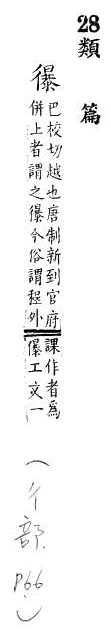 28 類篇
儤
巴校切越也唐制新到官府
併上者謂之儤今俗謂程外
課作者為
儤工文一
(彳部 P66)